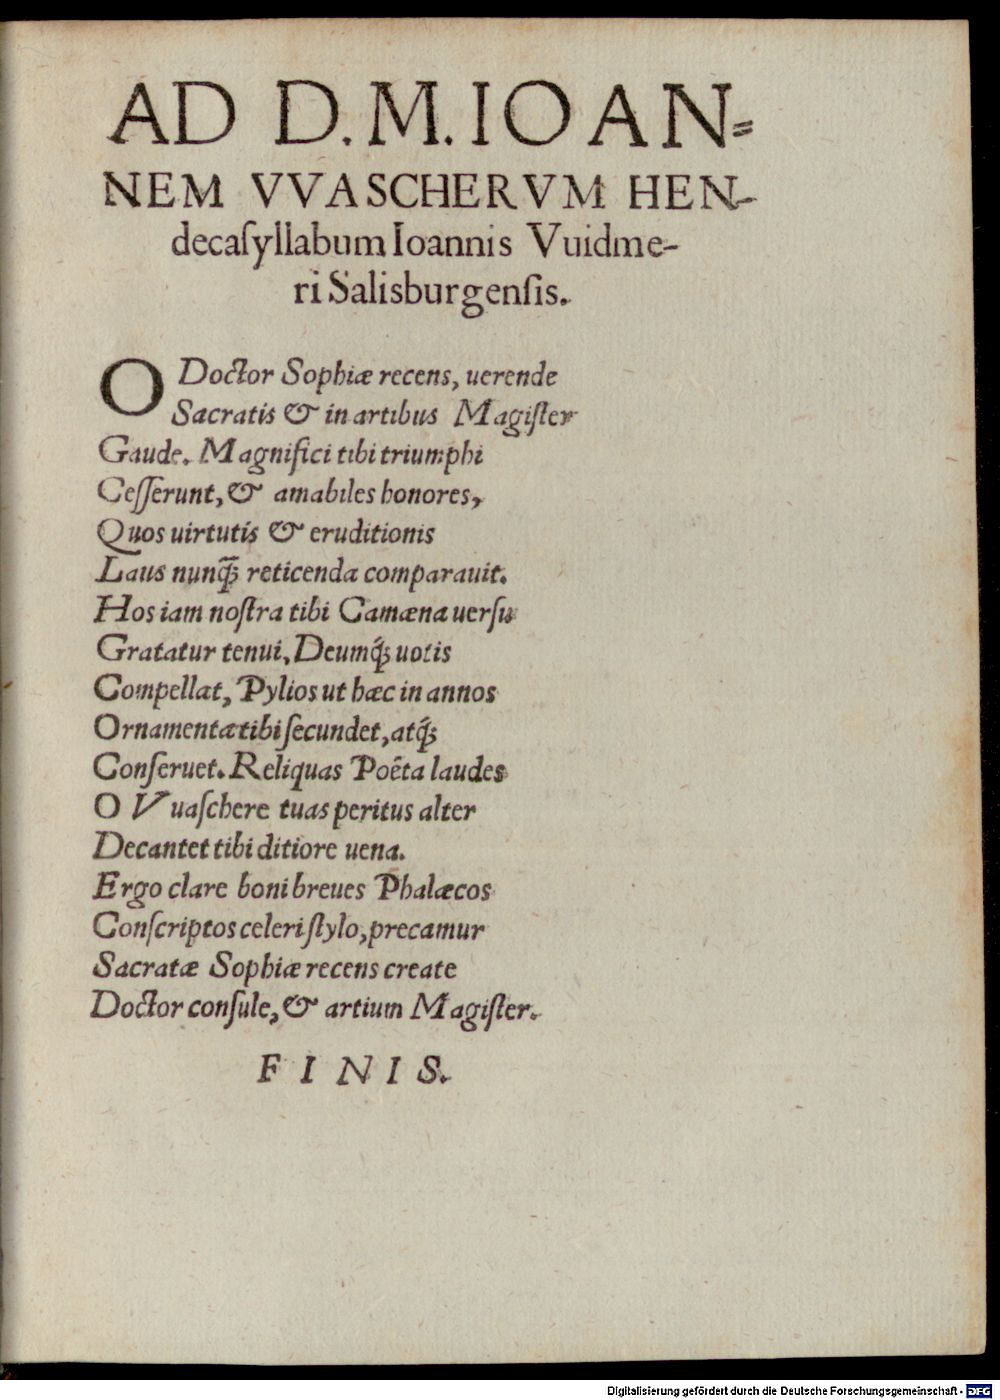 AD D. M. IOAN=
NEM VVASCHERVM HEN-
decaſyllabum Ioannis Vuidme-
ri Salisburgenſis.
O Doctor Sophiæ recens, uerende
Sacratis & in artibus Magiſter
Gaude. Magnifici tibi triumphi
Ceſſerunt, & amabiles honores,
Quos uirtutis & eruditionis
Laus nunq̃ꝫ reticenda comparauit.
Hos iam noſtra tibi Camæna uerſu
Gratatur tenui, Deumq́ꝫ uotis
Compellat, Pylios ut hæc in annos
Ornamenta tibi ſecundet, atq́ꝫ
Conſeruet. Reliquas Poëta laudes
O Vuaſchere tuas peritus alter
Decantet tibi ditiore uena.
Ergo clare boni breues Phalæcos
Conſcriptos celeri ſtylo, precamur
Sacratæ Sophiæ recens create
Doctor conſule, & artium Magiſter.
FINIS.
Digitalisierung gefördert durch die Deutsche Forschungsgemeinschaft - DFG